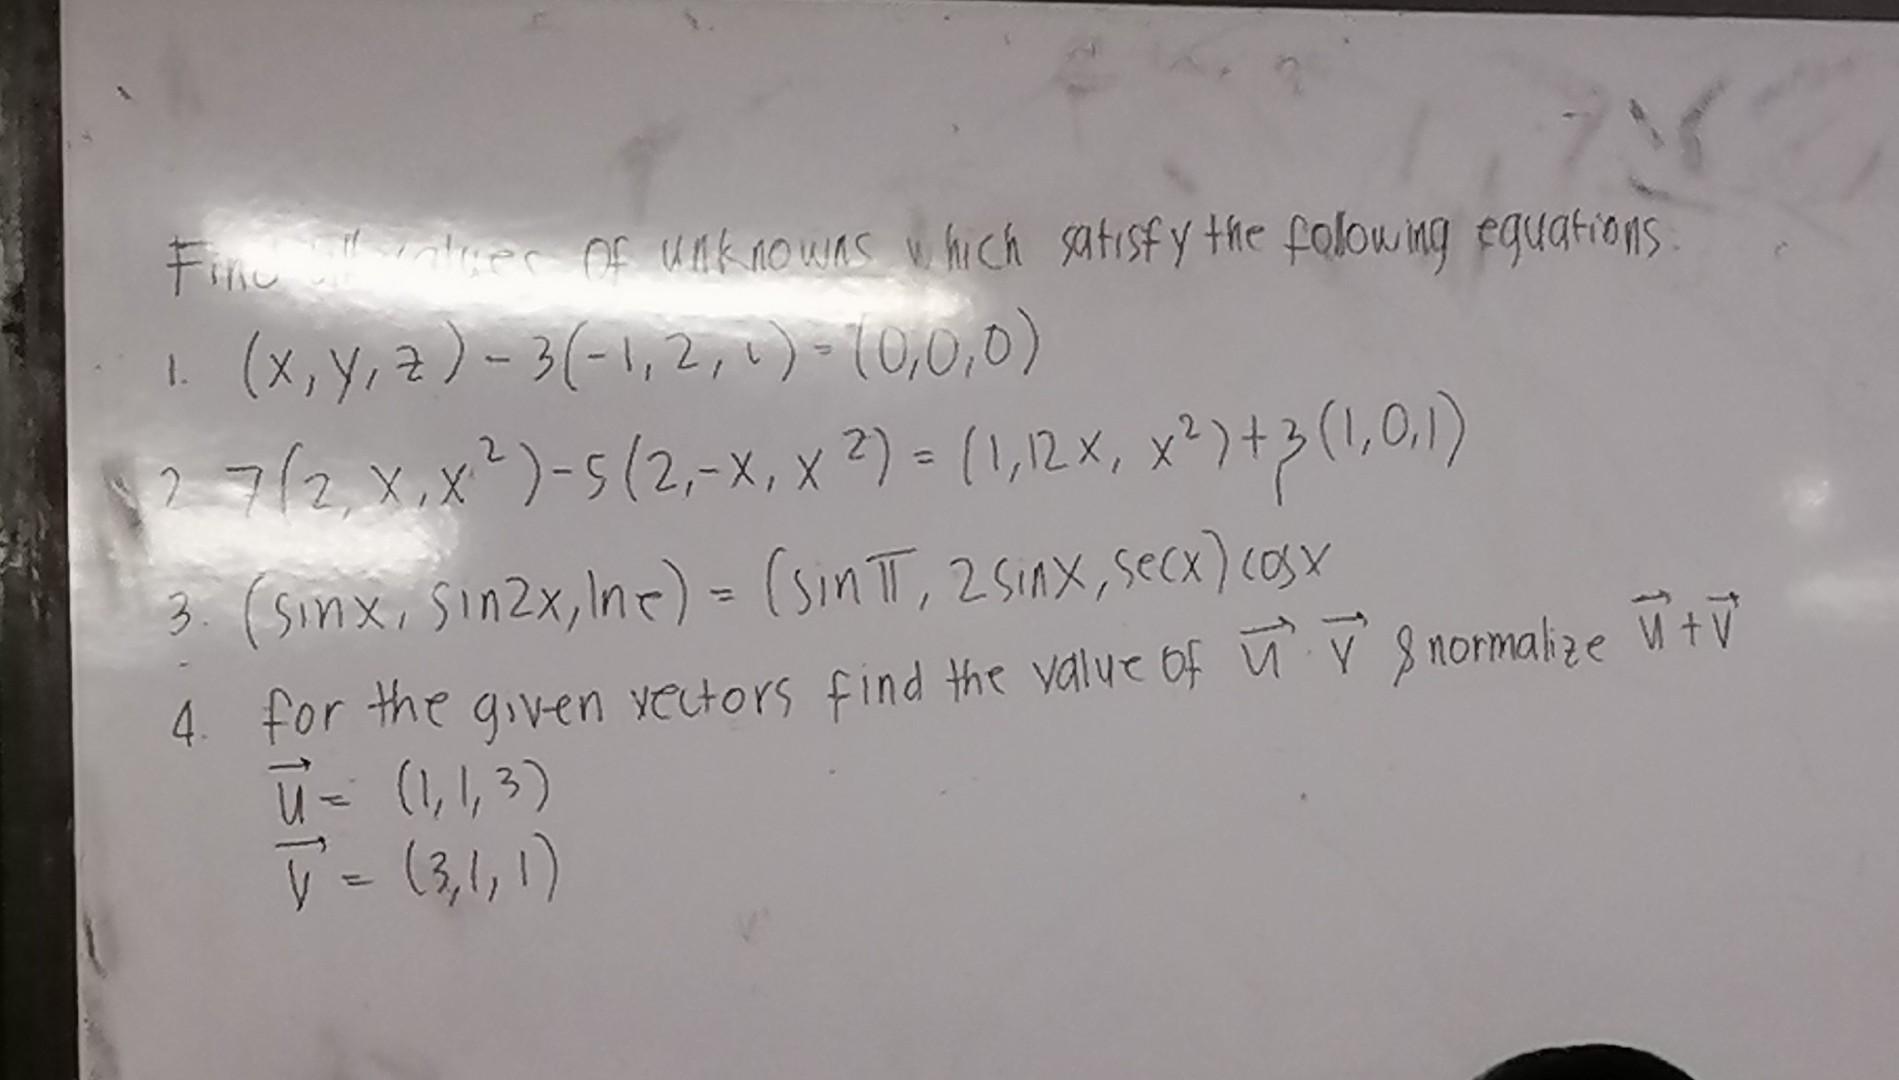 of unknowns which satisfy the folowing equations.
1. (x, y, z) - 3(-1, 2, ) = (0,0,0)
2. 7(2, x, x²) - 5(2, -x, x²) = (1, 12x, x²) + 3(1,0,1)
3. (sinx, sin2x, lne) = (sinπ, 2sinx, secx) cosx
4. for the given vectors find the value of u⃗ · v⃗ & normalize u⃗ + v⃗
u⃗ = (1, 1, 3)
v⃗ = (3, 1, 1)